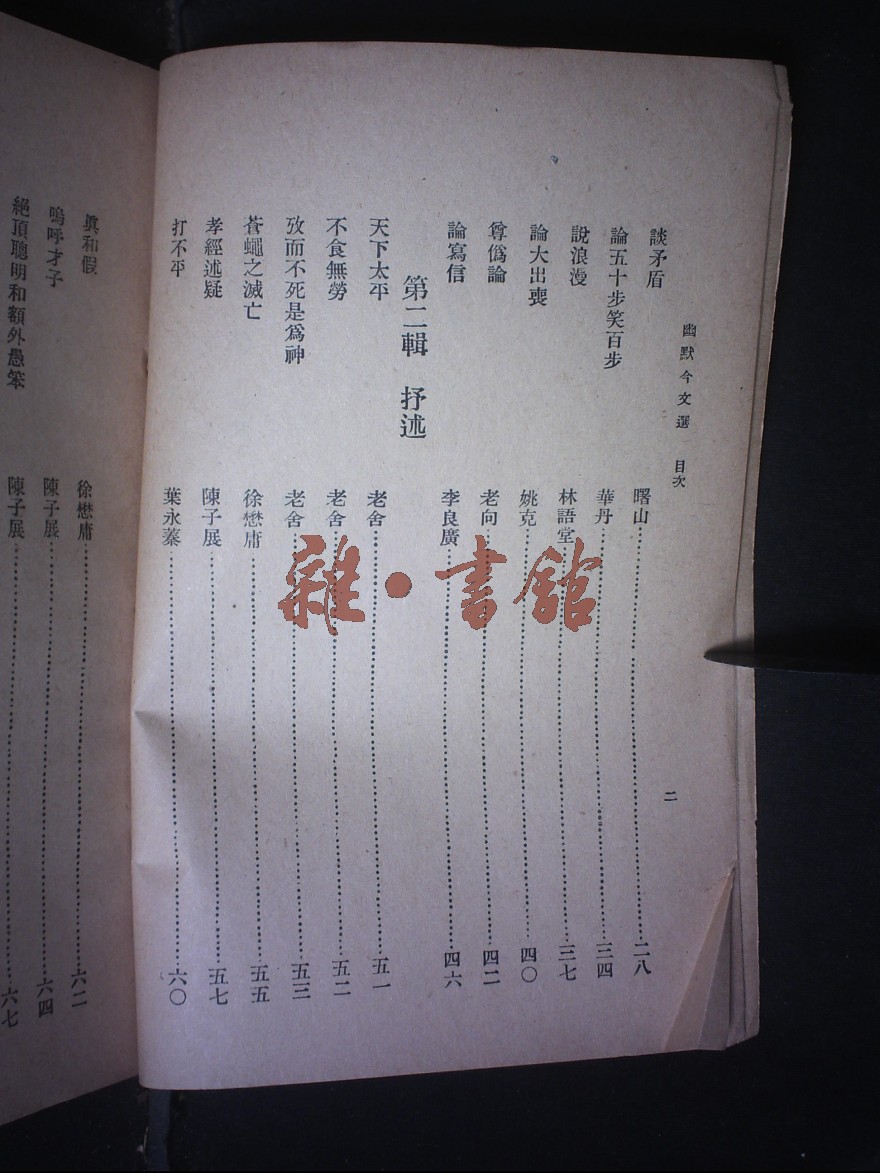 幽默今文選 目次
二
談矛盾 曙山 二八
論五十步笑百步 華丹 三四
說浪漫 林語堂 三七
論大出喪 姚克 四〇
尊僞論 老向 四二
論寫信 李良廣 四六
第二輯 抒述
天下太平 老舍 五一
不食無勞 老舍 五二
攷而不死是爲神 老舍 五三
蒼蠅之滅亡 徐懋庸 五五
孝經述疑 陳子展 五七
打不平 葉永蓁 六〇
眞和假 徐懋庸 六二
嗚呼才子 陳子展 六四
絕頂聰明和額外愚笨 陳子展 六七
雜·書館